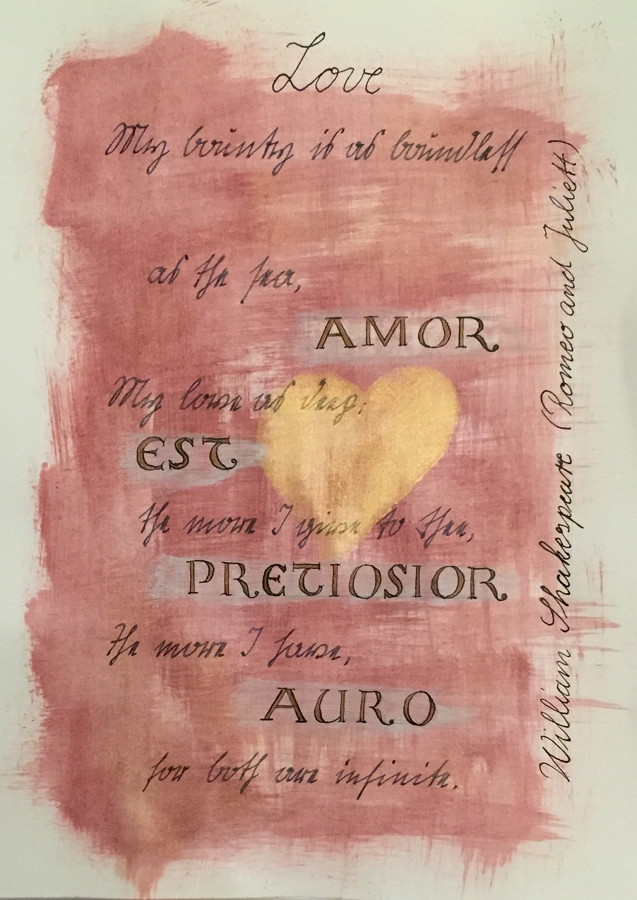 Love
My bounty is as boundless
as the sea,
AMOR
My love as deep;
EST
the more I give to thee,
PRETIOSIOR
the more I have,
AURO
for both are infinite.
William Shakespeare (Romeo and Juliett)